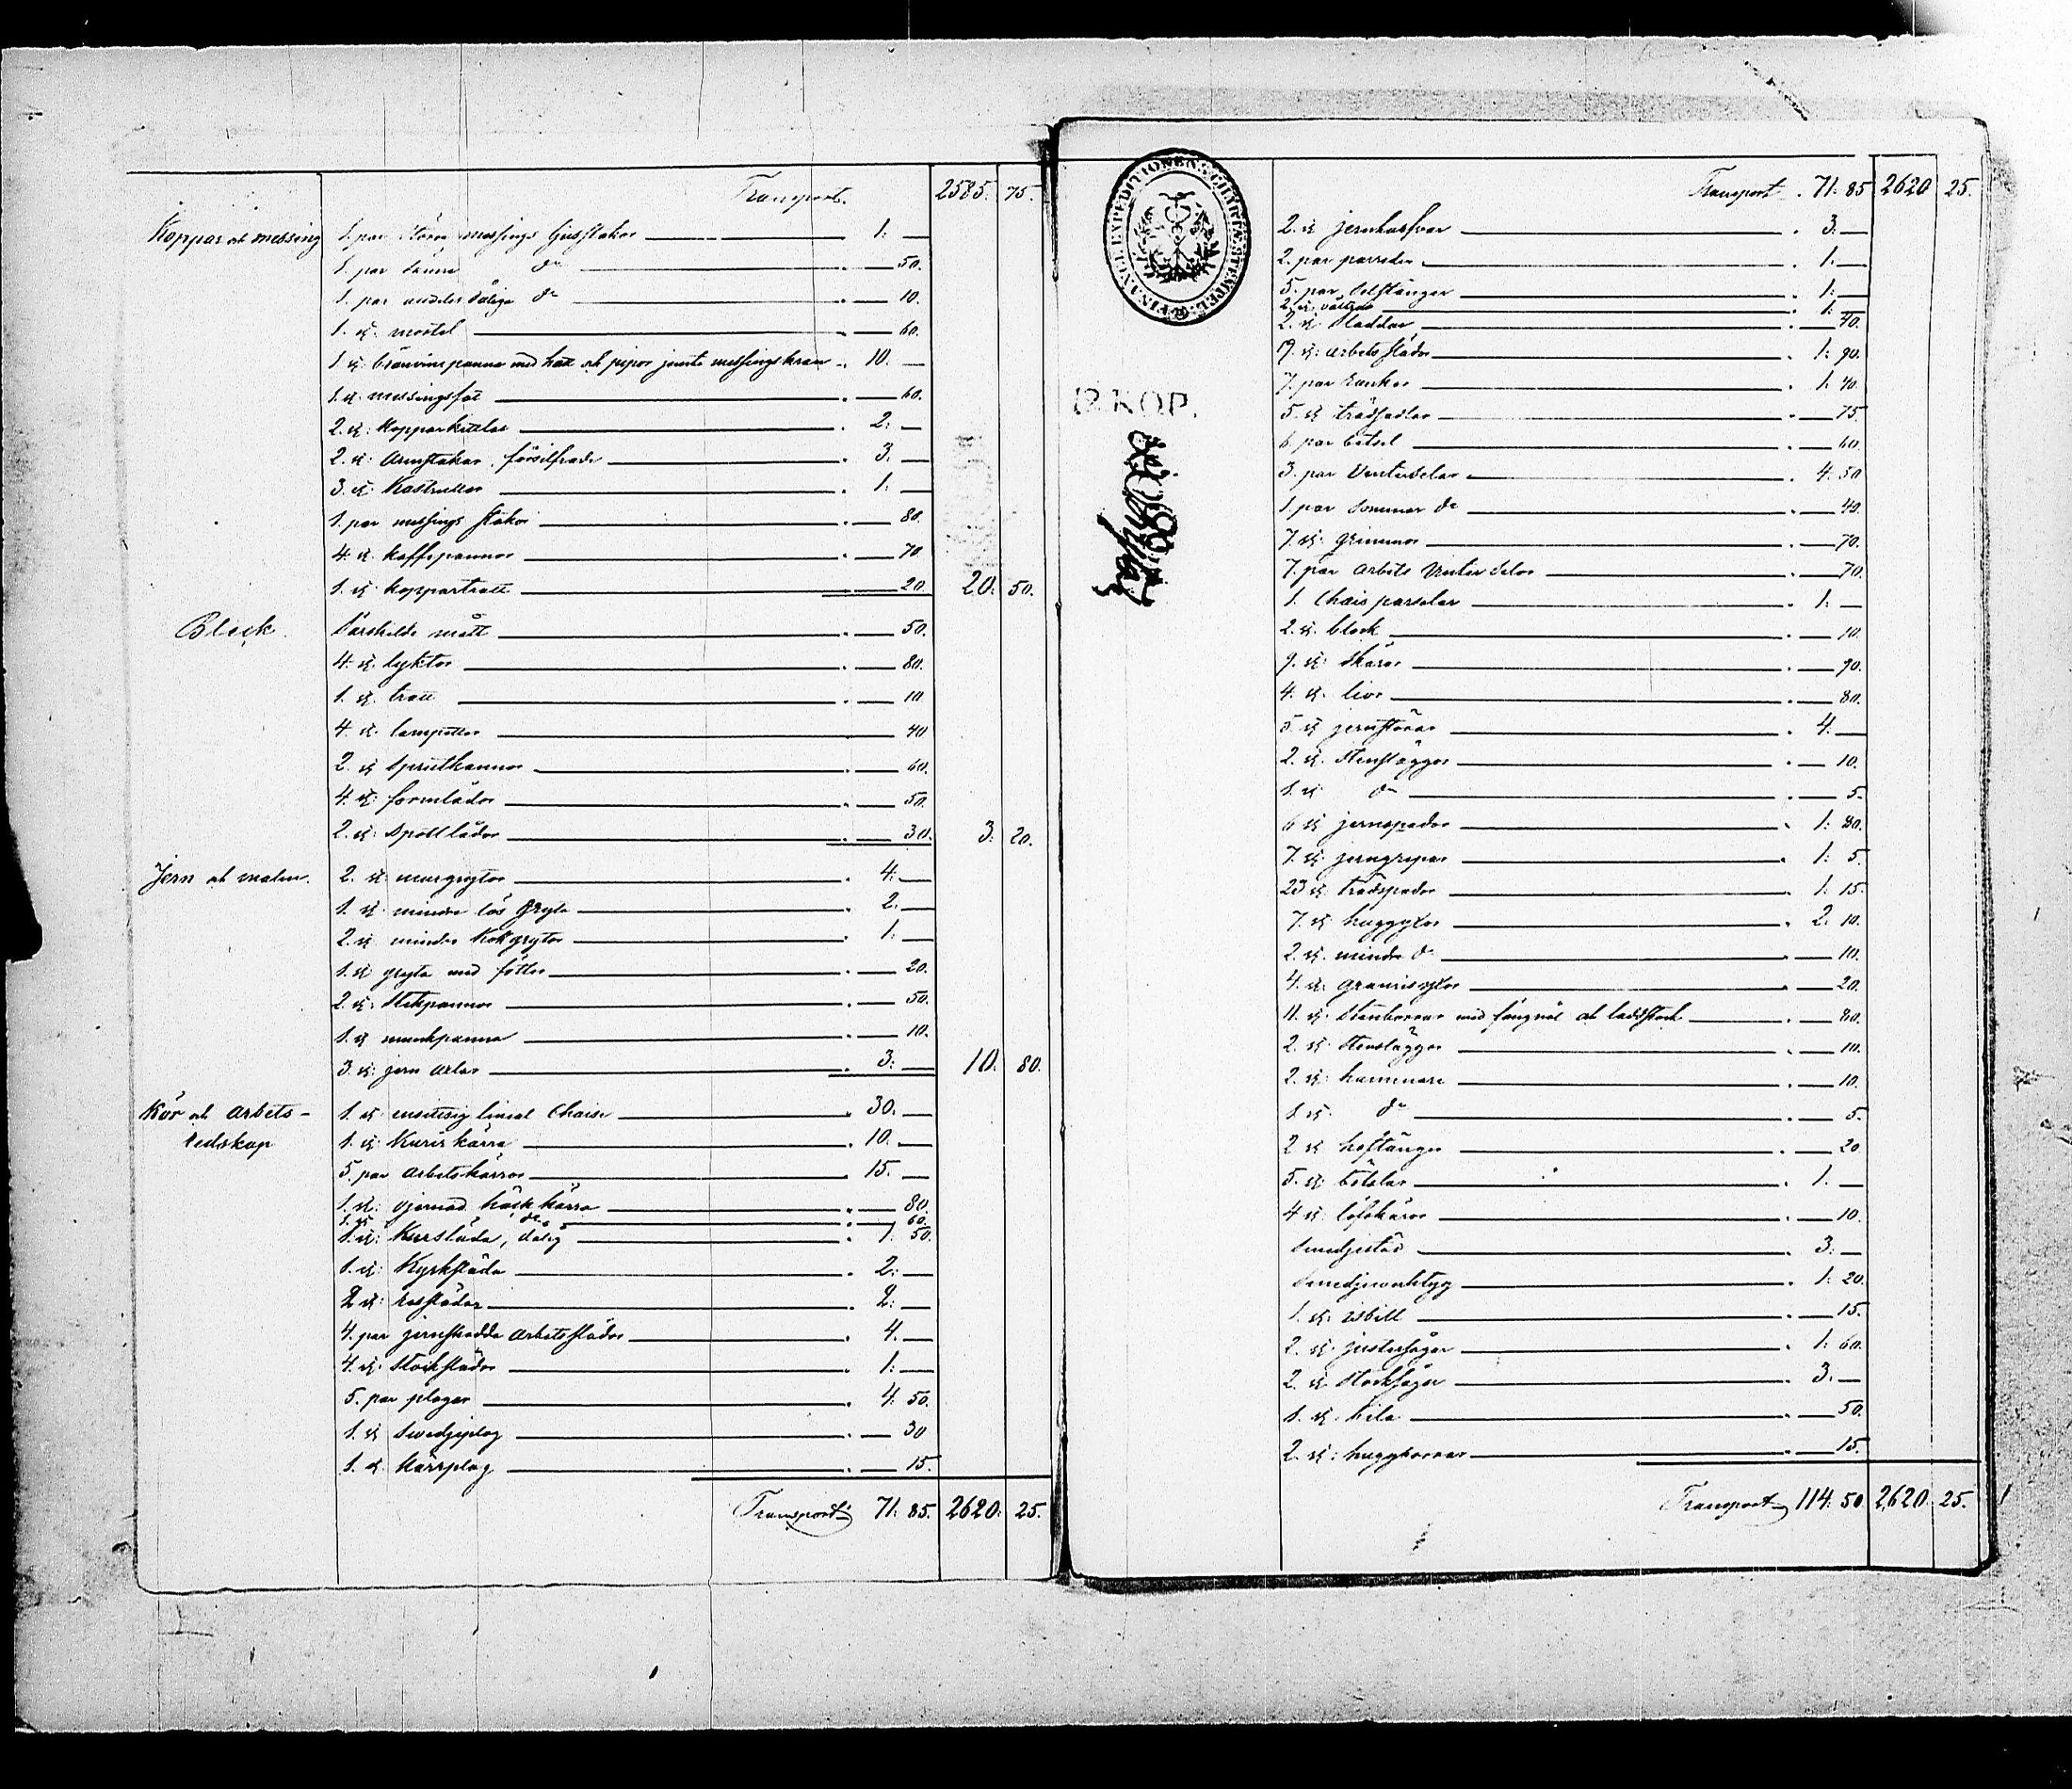 Transport. 2585. 75.
Koppar och messing 1. par större messings ljusstakar 1. —
1. par sämre do 50.
1. par dåliga do 10.
1. st. mortel 60.
1. st. brännvinspanna med hatt och pipor jemte messings kran 10. —
1. st. messingsfat 60.
2. st. kopparkittlar 2. —
2. st. Armstakar försilfrade 3. —
3. st. Kastruller 1. —
1. par messings stakar 80.
4. st. kaffepannor 70
1. st. koppartratt 20. 20. 50.
Bleck. Särskilde mått 50.
4. st. lyktor 80.
1. st. tratt 10
4. st. lampetter 40
2. st. sprutkannor 60.
4. st. formlådor 50.
2. st. spottlådor 30. 3. 20.
Jern och malm. 2. st. murgrytor 4. —
1. st. mindre lös gryta 2. —
2. st. mindre kokgrytor 1. —
1. st. gryta med fötter 20.
2. st. stekpannor 50.
1. st. munkpanna 10.
3. st. jern 3. — 10. 80.
Kör och arbets- 1. st. ensitsig Chaise 30. —
redskap 1. st. Kurirkärra 10. —
5. par arbetskärror 15. —
1. st. häckkärra 80.
1. st. do 60.
1. st. Kursläda, dålig 1. 50.
1. st. Kyrksläda 2. —
2 st. reslädor 2. —
4. par jernskodda arbetsslädor 4. —
4. st. stockslädor 1. —
5. par plogar 4. 50.
1. st. Svedjeplog 30
1. st. kärrplog 15.
Transport 71. 85. 2620. 25.
Transport 71. 85 2620 25.
2. st. jernharfvar 3. —
2. par 1. —
5. par 1. —
2. st. vältar 1. —
2. st. sladdar 40.
st. arbets slädor 1. 90.
7. par rankor 1. 40.
5. st. trädsadlar 75
6 par betsel 60.
3. par Vinterselar 4. 50
1. par sommar do 40.
7. st. grimmor 70.
7. par arbets Vinter selar 70.
1. Chais parselar 1. —
2. st. block 10.
9. st. skäror 90.
4. st. liar 80.
5 st. jernstörar 4. —
2. st. stenslaggor 10.
1. st. do 5.
6 st. jernspador 1. 80.
7. st. jerngrepar 1. 5.
23 st. trädspador 1. 15.
7. st. huggyxor 2. 10.
2. st. mindre do 10.
4. st. granrisyxor 20.
11. st. stenborrar med och laddstock 80.
2. st. stensläggor 10.
2. st. hammare 10.
1 st. do 5.
2 st. hoftänger 20
5. st. 1. —
4 st. löfskäror 10.
Smedjestäd 3. —
Smedjeverktyg 1. 20.
1. st. isbill 15.
2. st. justersågar 1. 60.
2. st. stocksågar 3. —
1. st. bila 50.
2. st. huggborrar 15.
Transport 114. 50. 2620. 25.
FINANCE EXPEDITIONENS CHARTÆ STEMPEL
12. KOP.